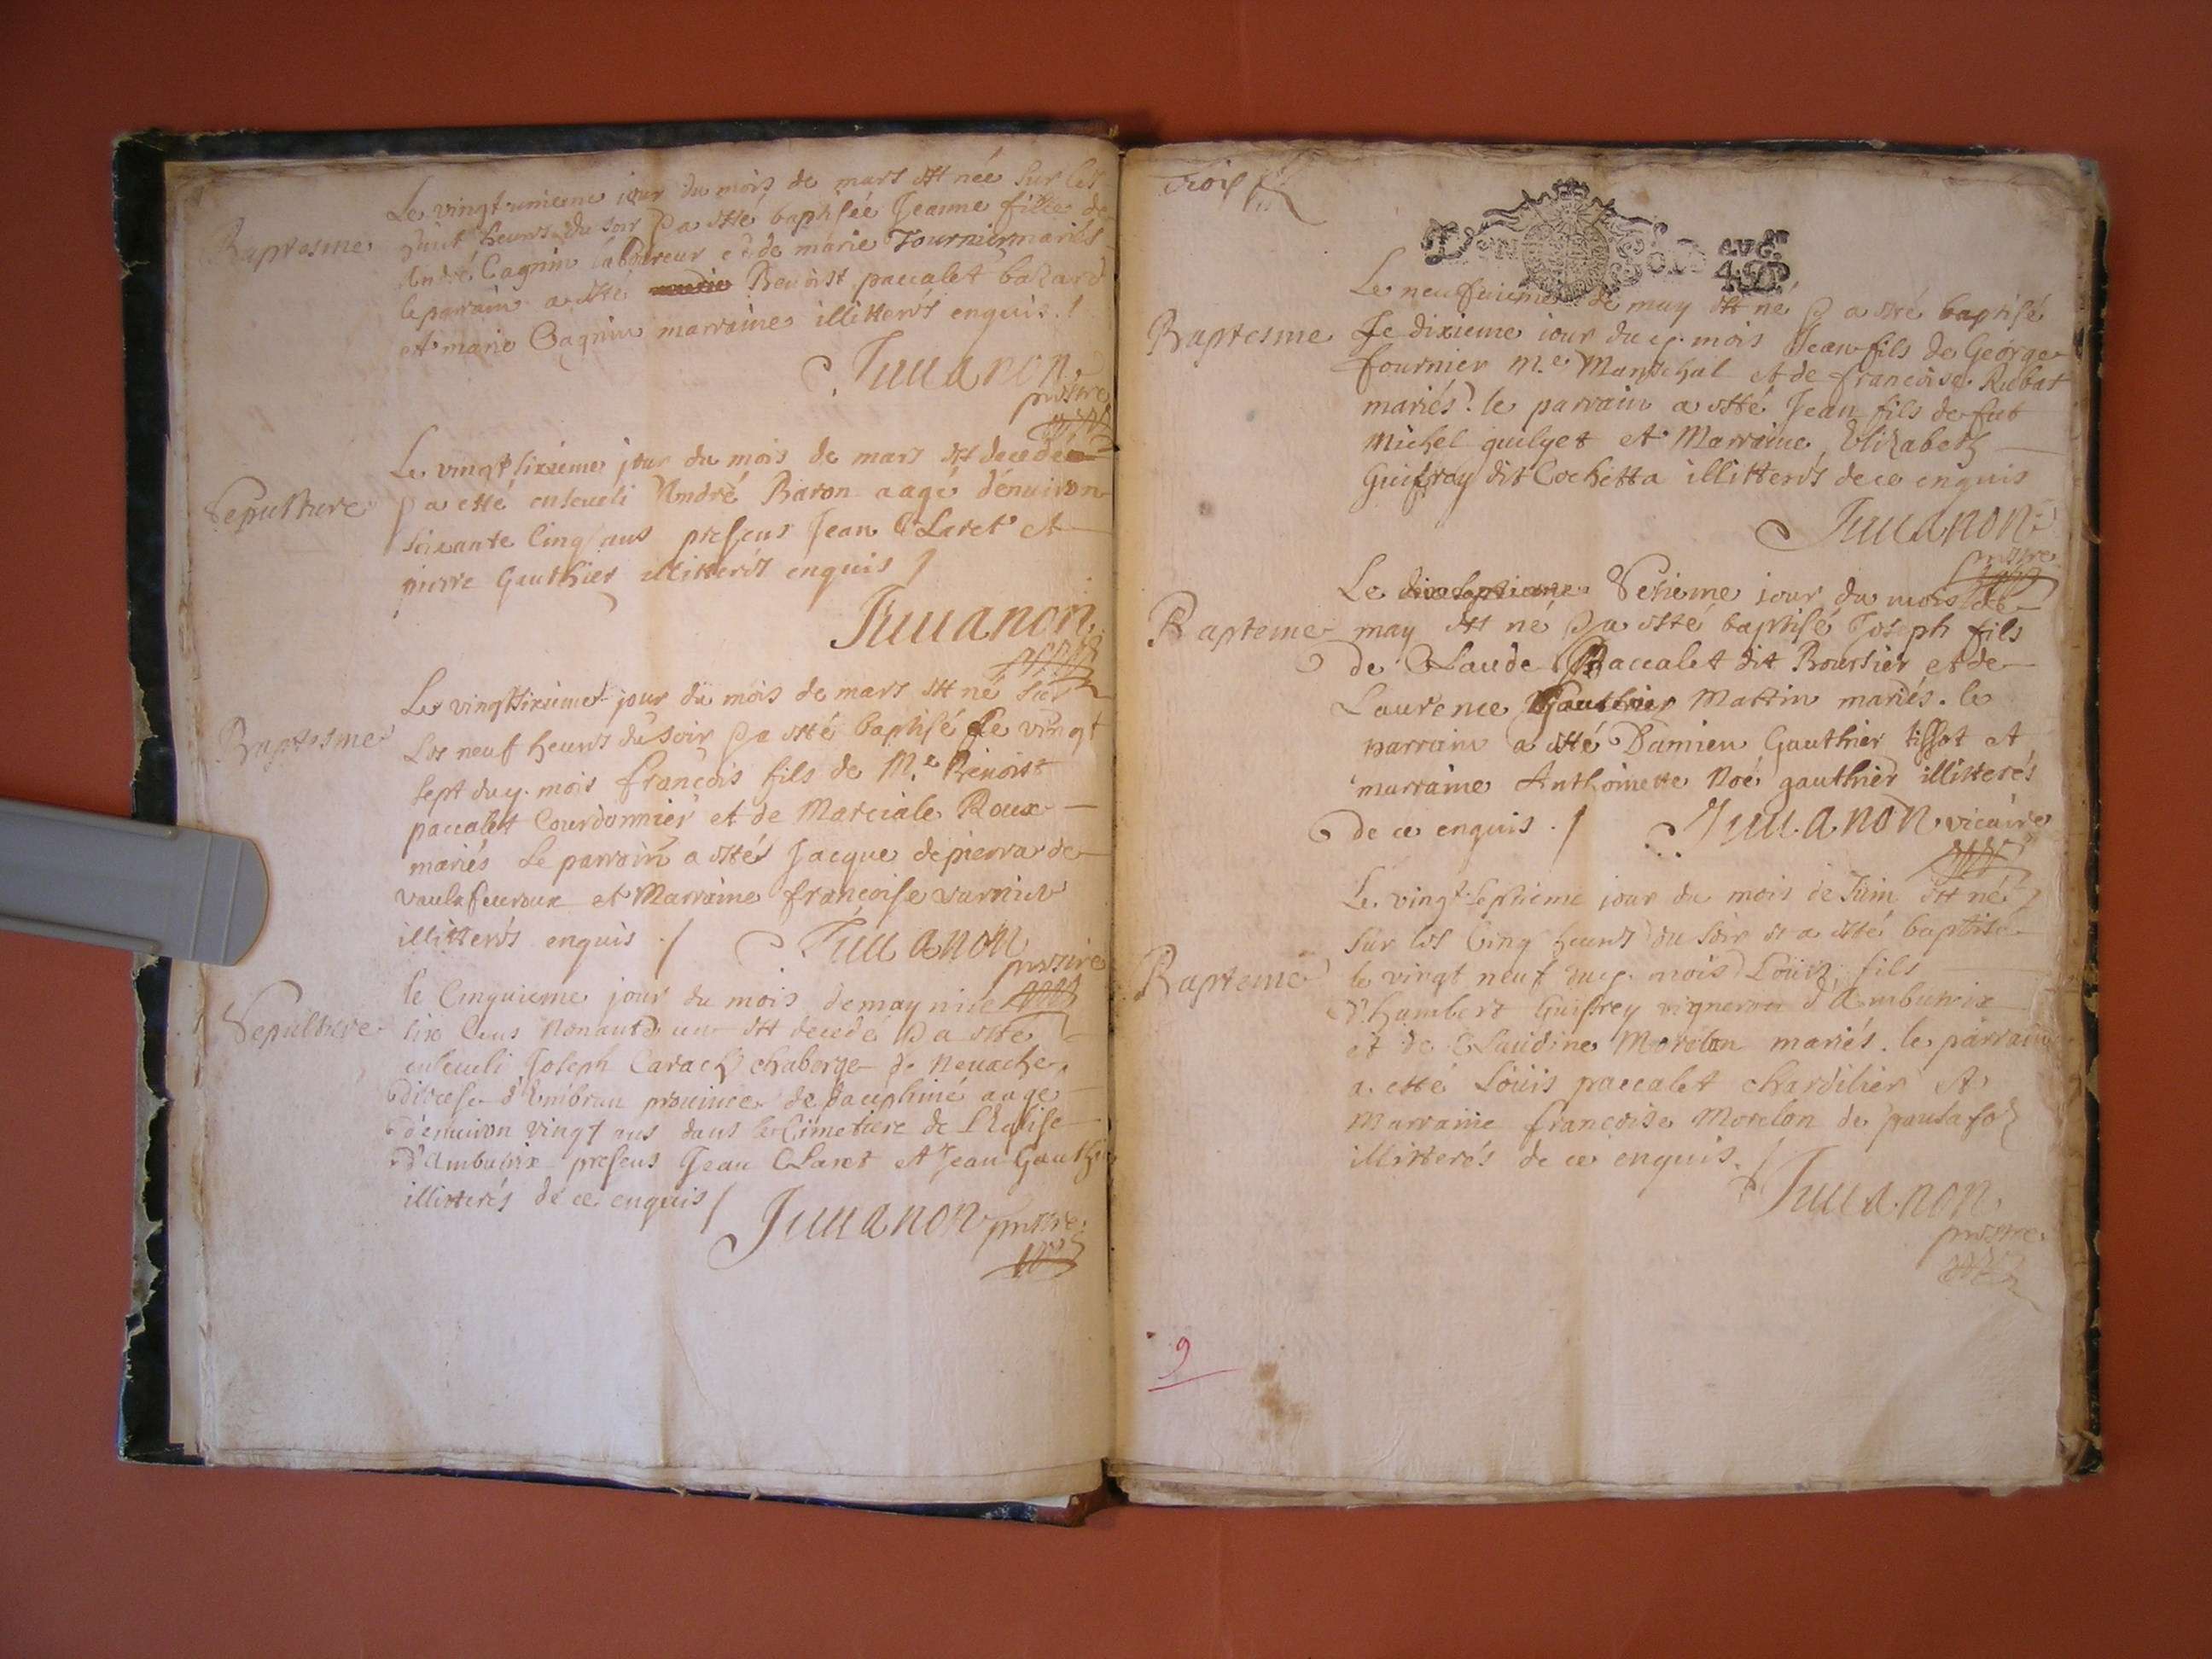 Baptesme
Le vingt unieme jour du mois de mars est née sur les
huit heures du soir & a esté baptisée Jeanne fille de
André Cagnin laboureur et de marie Tournier mariés
le parrain a esté Benoist paccalet
et marie Cagnin marraine illitterés enquis. /
Juuanon
prestre
Sepulture
Le vingt sixieme jour du mois de mars est decedé
& a esté enseueli André Baron aagé d'enuiron
soixante cinq ans presens Jean Claret et
pierre Gauthier illitterés enquis /
Juuanon
Baptesme
Le vingt sixieme jour du mois de mars est né sur
les neuf heures du soir & a esté baptisé le vingt
sept du mois françois fils de M.e Benoist
paccalet Courdonnier et de Marciale Roux
mariés Le parrain a esté Jacque depierra de
et Marraine françoise
illitterés enquis . / Juuanon
prestre
Sepulture
le Cinquieme jour du mois de may mil
six Cens Nonante un est decedé & a esté
enseueli Joseph Carach de Neuache
diocese d'Embrun prouince de dauphiné aagé
d'enuiron vingt ans dans le Cimetiere de L'Eglise
d'Ambutrix presens Jean Claret et Jean Gauthier
illitterés de ce enquis / Juuanon prestre
Trois
AUG.on
4.D
Baptesme
Le neufuieme de may est né & a esté baptisé
Le dixieme jour du mois Jean fils de George
fournier m.e Mareschal et de francoise Rubat
mariés. le parrain a esté Jean fils de fut
Michel et Marraine Elizabeth
Guifray dit Cochetta illitterés de ce enquis
Juuanon
prestre
Bapteme
Le dixseptieme Sesieme jour du mois de
may est né & a esté baptisé Joseph fils
de Claude Paccalet dit Boursier et de
Laurence Gauthier Mattin mariés. le
parrain a esté Damien Gauthier tissot et
marraine Anthoinette Noé gauthier illitterés
de ce enquis . / Juuanon vicaire
Bapteme
Le vingt-septieme jour du mois de Juin est né
sur les Cinq heures du soir et a esté baptisé
le vingt neuf du mois Loüis fils
d'humbert Guifrey vigneron d'Ambutrix
et de Claudine Morelon mariés. le parrain
a esté Loüis paccalet et
Marraine francoise Morelon de
illitterés de ce enquis. /
Juuanon
prestre
9